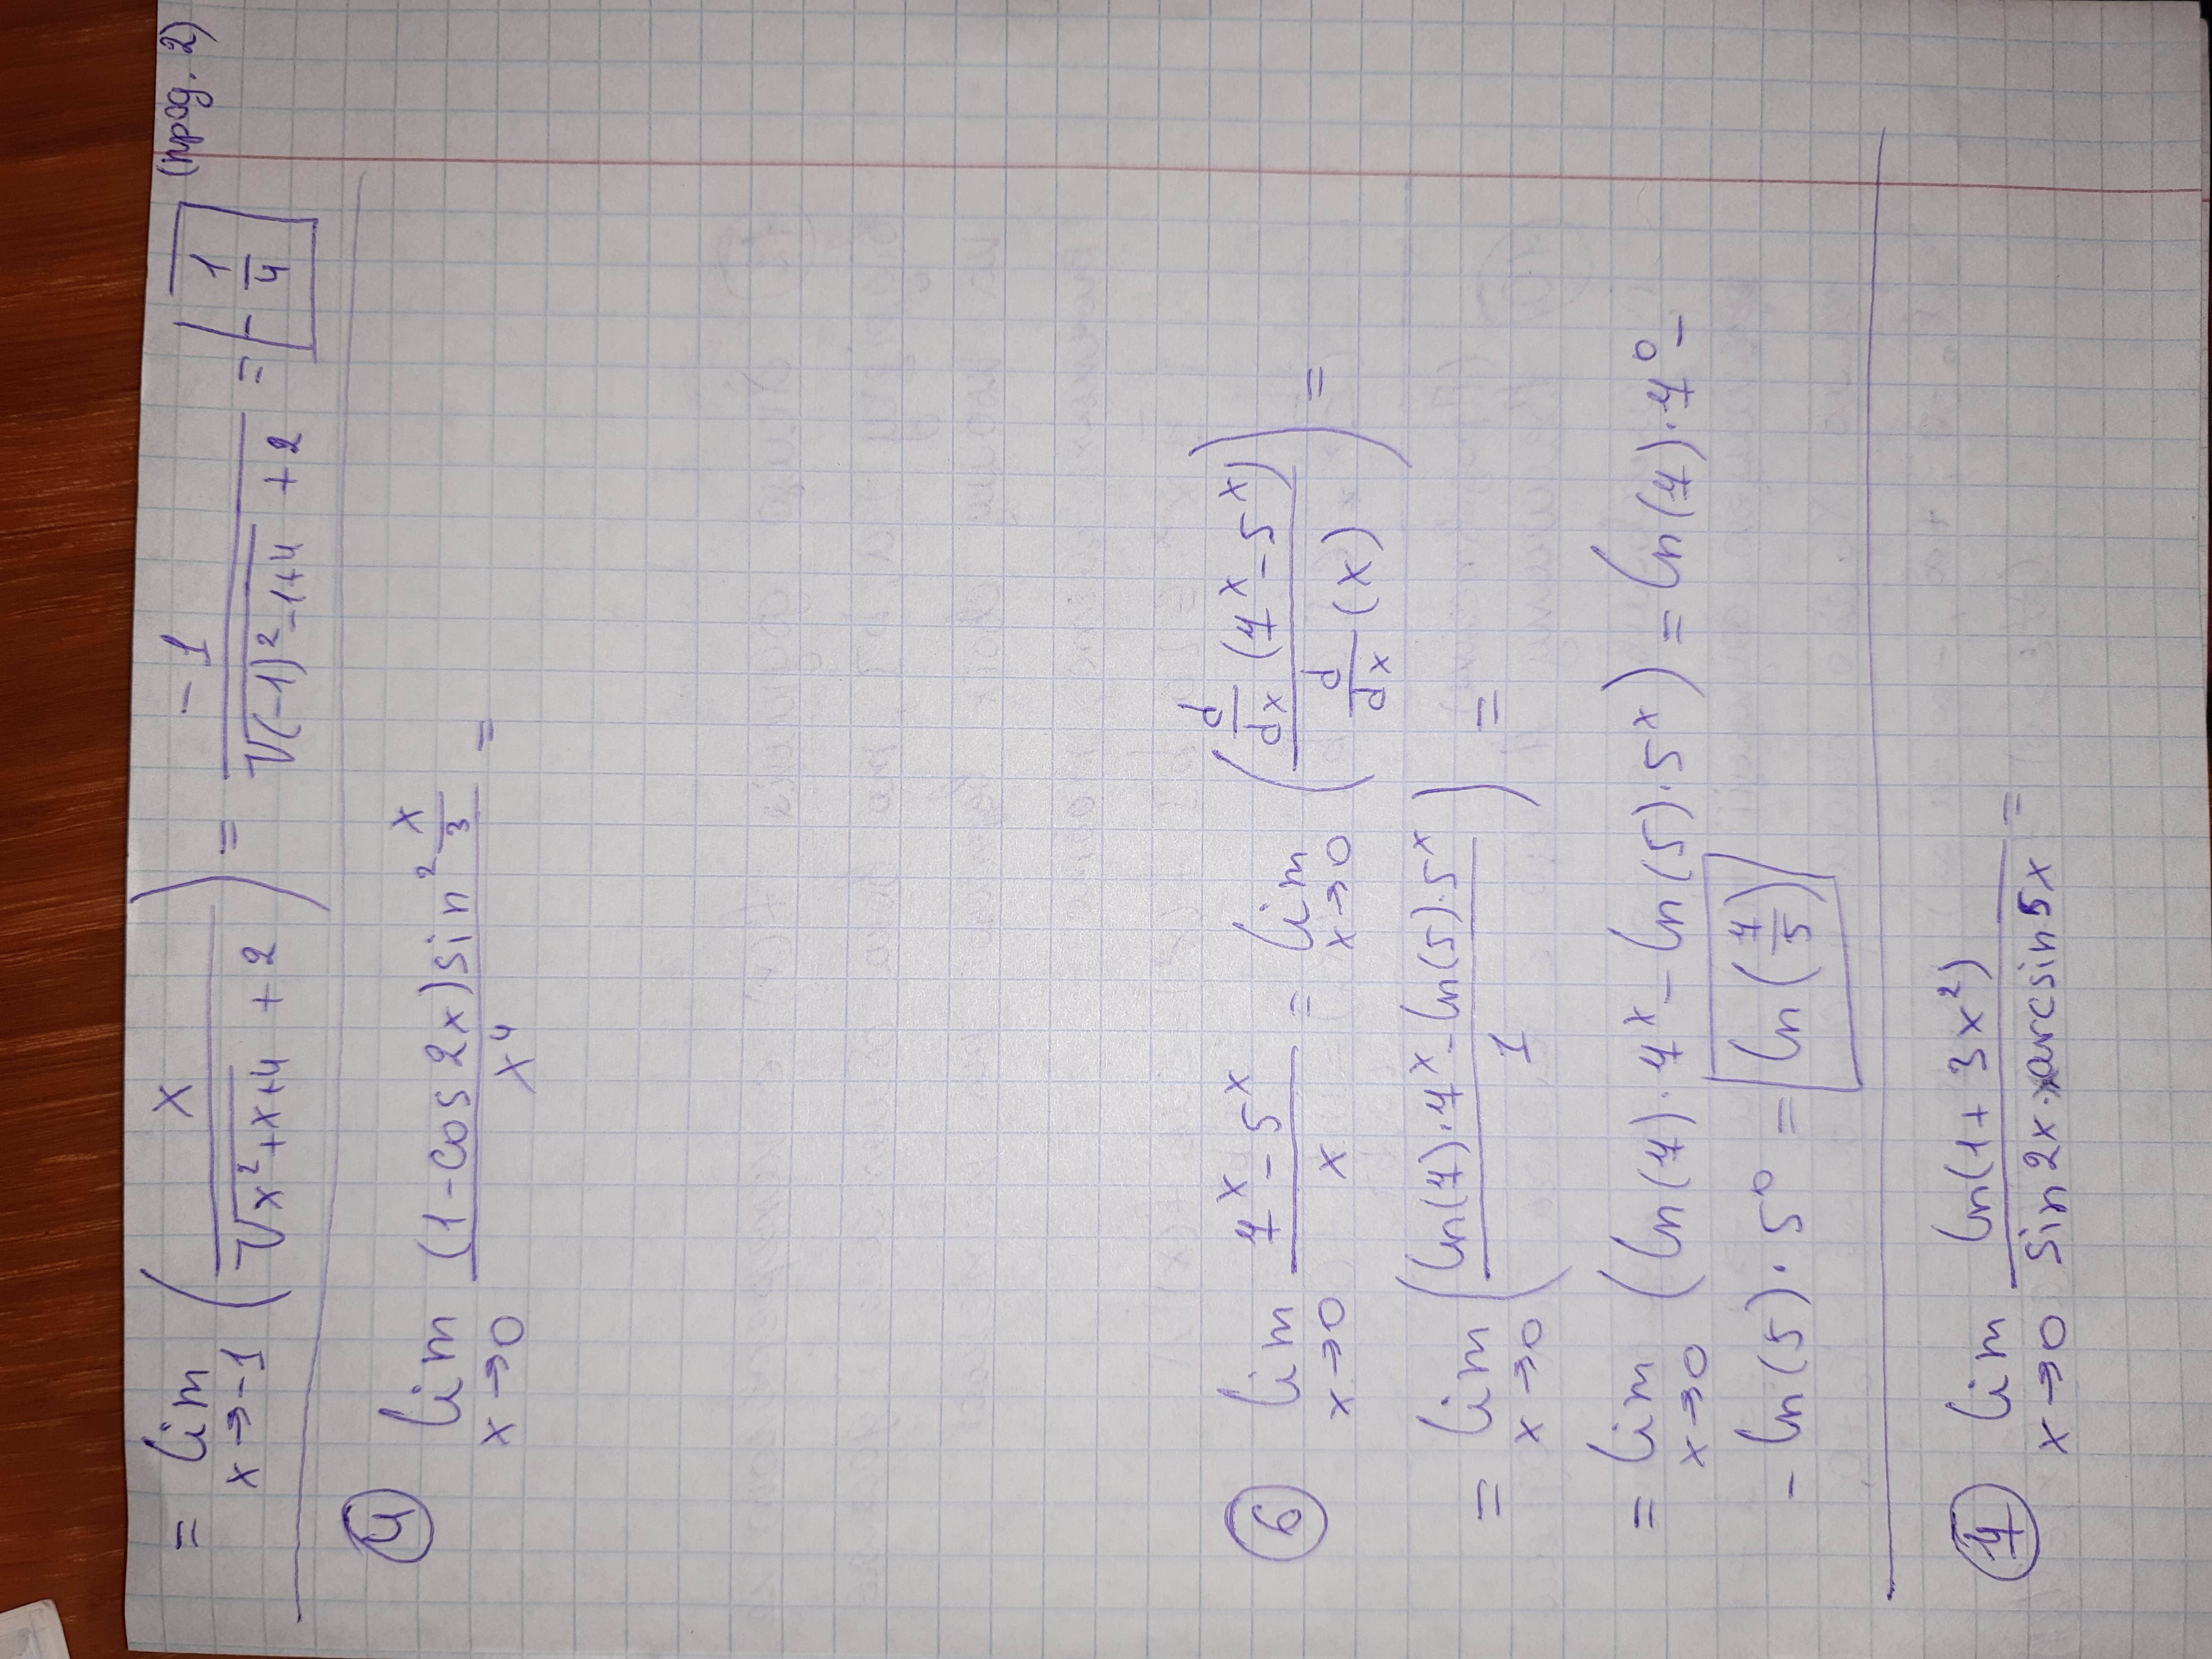 (прод. 2)
= lim x→-1 (x / (√(x²+x+4) + 2)) = -1 / (√((-1)²-1+4) + 2) = -1/4
4
lim x→0 ((1-cos 2x) sin² x/3) / x⁴ =
6 lim x→0 (7ˣ - 5ˣ) / x = lim x→0 (d/dx (7ˣ - 5ˣ) / d/dx (x)) =
= lim x→0 ((ln(7)·7ˣ - ln(5)·5ˣ) / 1) =
= lim x→0 (ln(7)·7ˣ - ln(5)·5ˣ) = ln(7)·7⁰ -
- ln(5)·5⁰ = ln(7/5)
7 lim x→0 ln(1+3x²) / (sin 2x · arcsin 5x) =